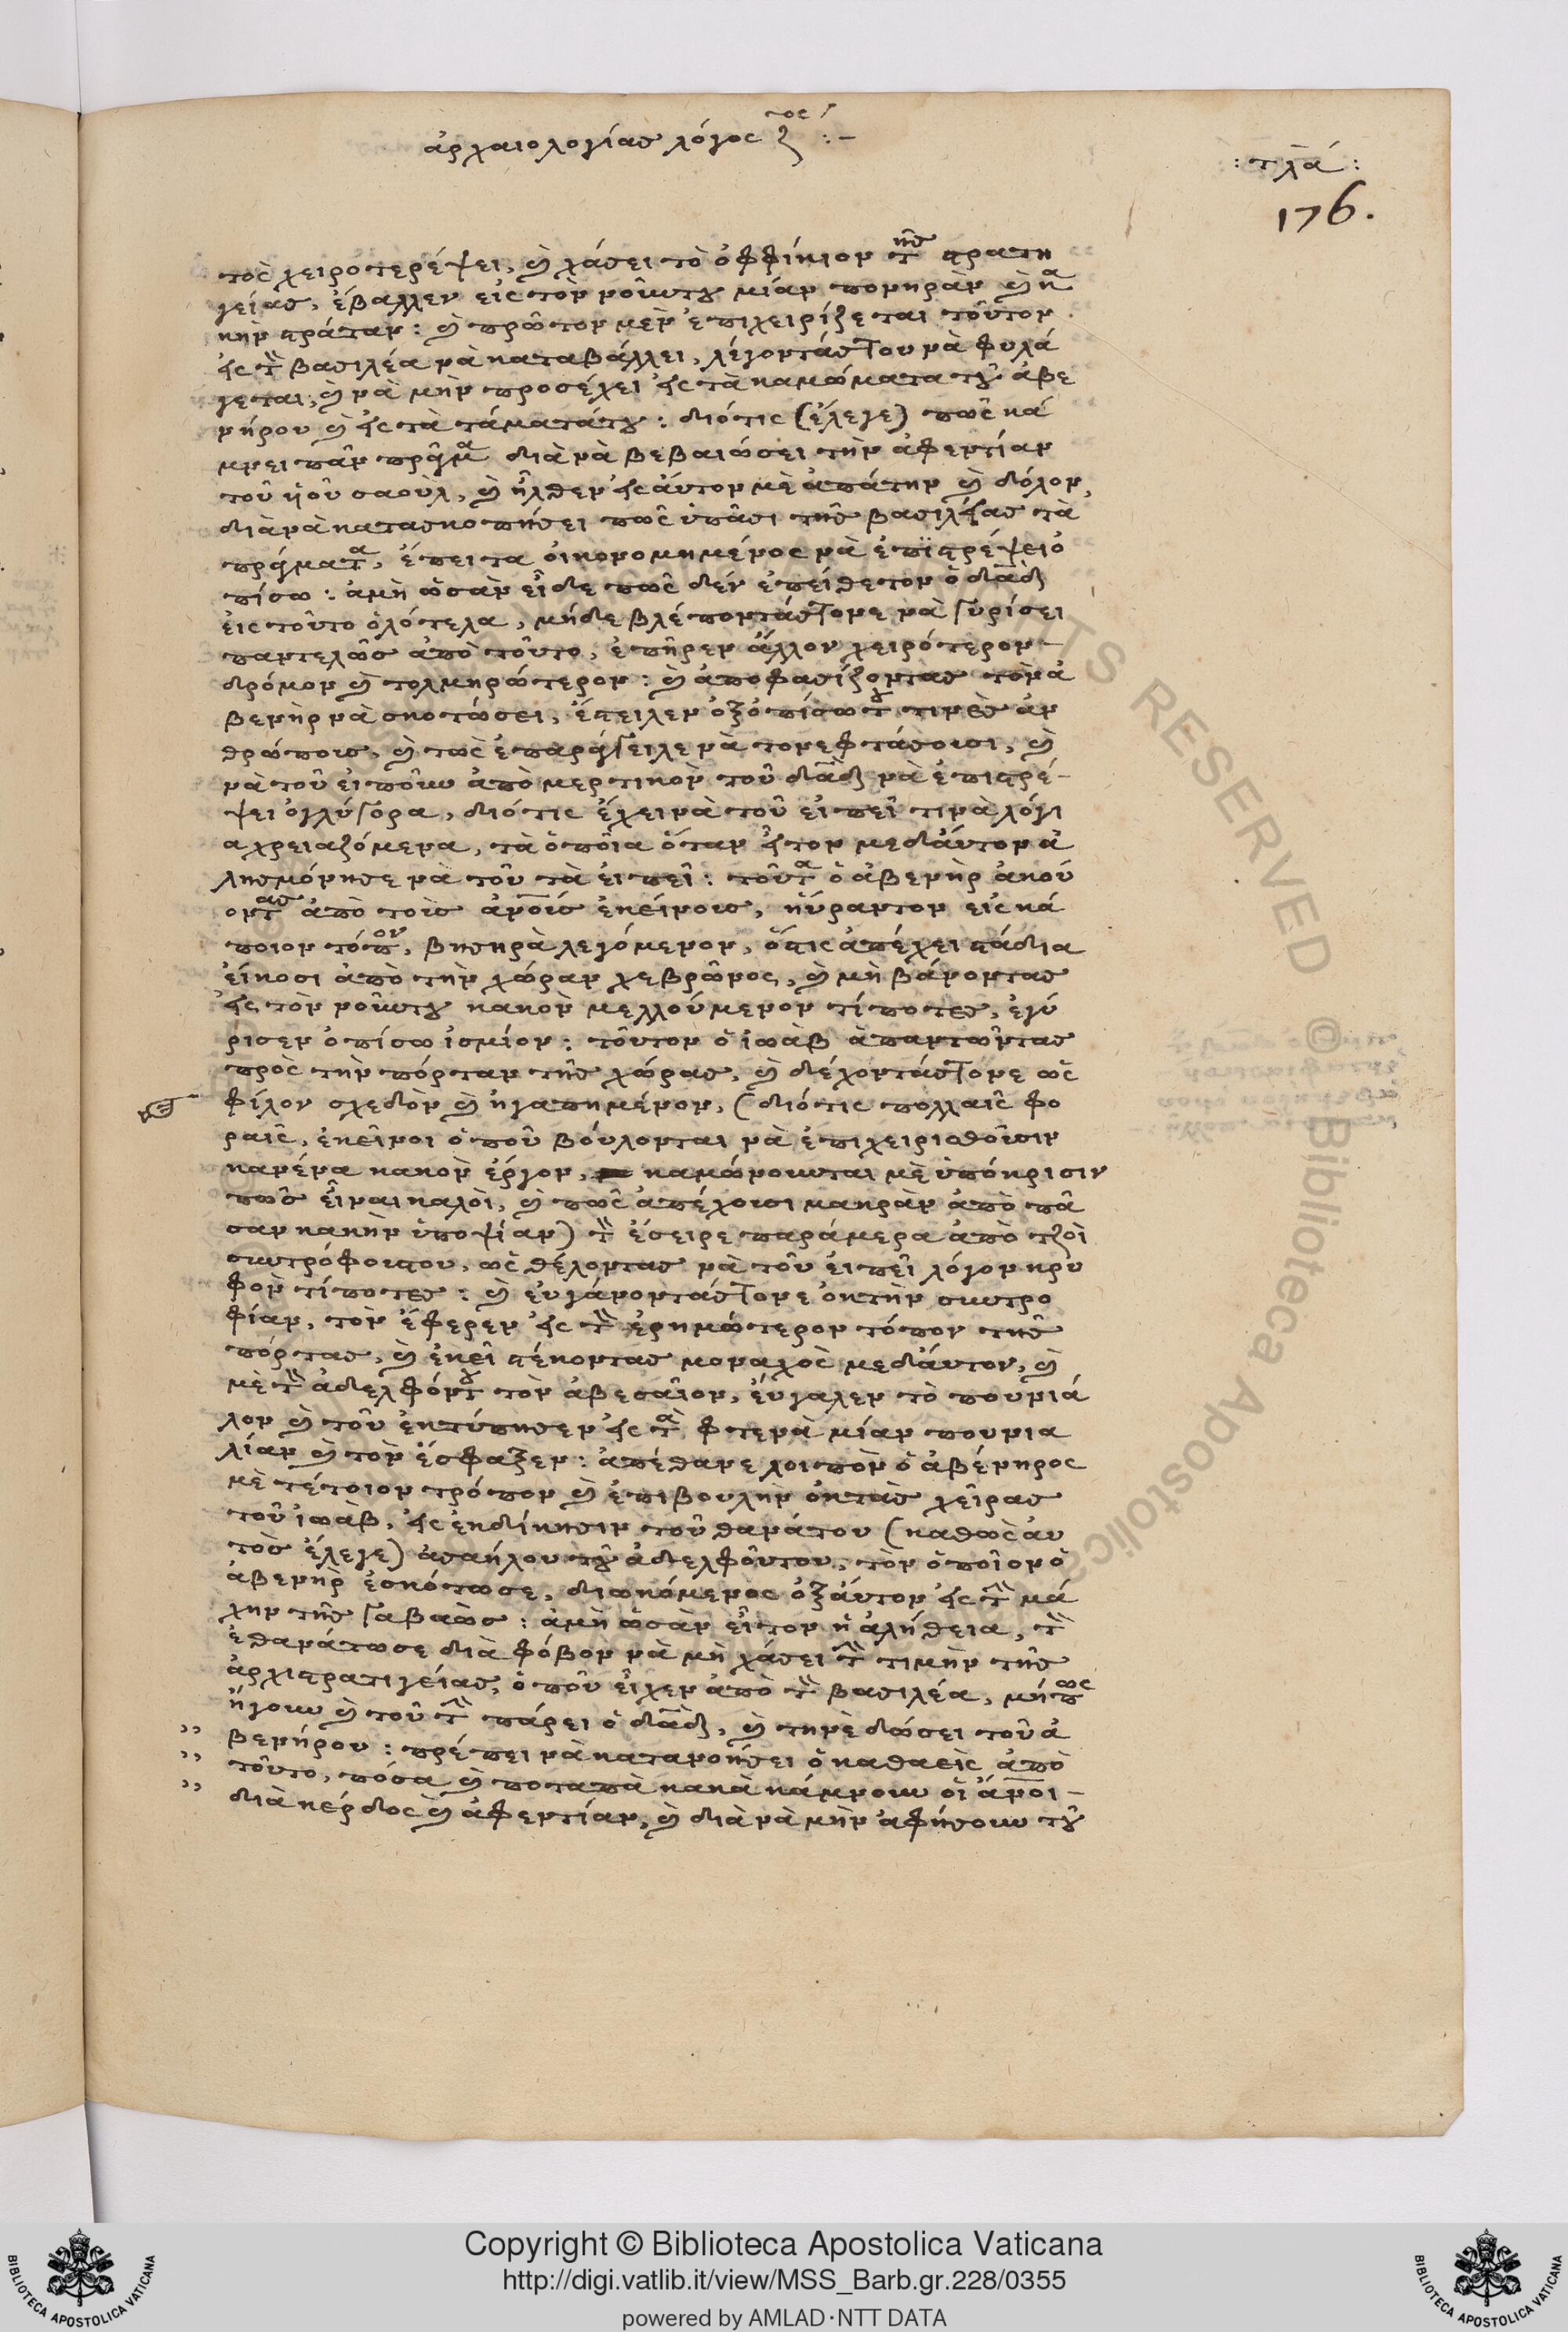 ἀρχαιολογίας λόγος ζος :-
: τλα :
176.
τὸς χειροτερέψει, καὶ χάσει τὸ ὀφφίκιον τῆς στρατη
γείας, ἔβαλλεν εἰς τὸν νοῦν του μίαν πονηρὰν καὶ
κὴν στράταν : καὶ πρῶτον μὲν ἐπιχειρίζεται τοῦτον
εἰς τὸν βασιλέα νὰ καταβάλλει, λέγοντάς του νὰ φυλά
γεται, καὶ νὰ μὴν προσέχει εἰς τὰ καμώματα τοῦ ἀβε
νήρου καὶ εἰς τὰ τάματά του : διότις (ἔλεγε) πῶς κά
μνει πᾶν πρᾶγμα διὰ νὰ βεβαιώσει τὴν ἀφεντίαν
τοῦ ὑιοῦ σαοὺλ, καὶ ἦλθεν εἰς αὐτον μὲ ἀπάτην καὶ δόλον,
διὰ νὰ κατασκοπήσει πῶς ὑπᾶσι τῆς βασιλείας τὰ
πράγματα, ἔπειτα οἰκονομημένος νὰ ἐπιστρέψει ὀ
πίσω : ἀμὴ ὡσὰν εἶδε πῶς δέν ἐπείθετον ὁ δαδ
εἰς τοῦτο ὁλότελα, μήδε βλέποντάς τονε νὰ γυρίσει
παντελῶς ἀπὸ τοῦτο, ἐπῆρεν ἄλλον χειρότερον
δρόμον καὶ τολμηρώτερον : καὶ ἀποφασίζοντας τὸν ἀ
βενὴρ νὰ σκοτώσει, ἔστειλεν ὀξοπίσω του τινὲς ἀν
θρώπους, καὶ τοὺς ἐπαράγγειλε νὰ τονε φτάσουσι, καὶ
νὰ τοῦ εἰποῦν ἀπὸ μερτικὸν τοῦ δαδ νὰ ἐπιστρέ-
ψει ὀγλύγορα, διότις ἔχει νὰ τοῦ εἰπεῖ τινὰ λόγι
α χρειαζόμενα, τὰ ὁποῖα ὅταν ἦτον μεδαύτον ἀ
λησμόνησε νὰ τοῦ τὰ εἰπεῖ : τοῦτα ὁ ἀβενὴρ ἀκού
οντας ἀπὸ τοὺς ἀνοὺς ἐκείνους, ηὕραντον εἰς κά
ποιον τόπον, βησηρὰ λεγόμενον, ὅστις ἀπέχει στάδια
εἴκοσι ἀπὸ τὴν χώραν χεβρῶνος, καὶ μὴ βάνοντας
εἰς τὸν νοῦν του κακὸν μελλούμενον τίποτες, ἐγύ
ρισεν ὀπίσω ἰσμίον : τοῦτον ὁ ἰωὰβ ἀπαντῶντας
πρὸς τὴν πόρταν τῆς χώρας, καὶ δέχοντάς τονε ὡς
φίλον σχεδὸν καὶ ἠγαπημένον, (διότις πολλαῖς φο
ραῖς, ἐκεῖνοι ὁποῦ βούλονται νὰ ἐπιχειρισθοῦσιν
κανένα κακὸν ἔργον, καμώνουνται μὲ ὑπόκρισιν
πῶς εἶναι καλοὶ, καὶ πῶς ἀπέχουσι μακρὰν ἀπὸ πᾶ
σαν κακὴν ὑποψίαν) τὸν ἔσειρε παράμερα ἀπὸ τζοὶ
συντρόφους του, ὡς θέλοντας νὰ τοῦ εἰπεῖ λόγον κρυ
φὸν τίποτες : καὶ εὐγάνοντάς τονε ὀκ τὴν συντρο
φίαν, τὸν ἔφερεν εἰς τὸν ἐρημώτερον τόπον τῆς
πόρτας, καὶ ἐκεῖ στέκοντας μοναχὸς μεδαύτον, καὶ
μὲ τὸν ἀδελφόν του τὸν ἀβεσαῖον, εὔγαλεν τὸ πουνιά
λον καὶ τοῦ ἐκτύπησεν εἰς τὰ φτενὰ μίαν πουνια
λίαν καὶ τὸν ἔσφαξεν : ἀπέθανε λοιπὸν ὁ ἀβένηρος
μὲ τέτοιον τρόπον καὶ ἐπιβουλὴν ὀκ τὰς χεῖρας
τοῦ ἰωὰβ, εἰς ἐκδίκησιν τοῦ θανάτου (καθὼς αὐ
τὸς ἔλεγε) ἀσαήλου τοῦ ἀδελφοῦντου, τὸν ὁποῖον ὁ
ἀβενὴρ ἐσκότωσε, διωκόμενος ὀξαύτον εἰς τὴν μά
χην τῆς γαβαὼς : ἀμὴ ὡσὰν εἶτον ἡ ἀλήθεια, τὸν
ἐθανάτωσε διὰ φόβον νὰ μὴ χάσει τὴν τιμὴν τῆς
ἀρχιστρατιγείας, ὁποῦ εἶχεν ἀπὸ τὸν βασιλέα, μήπως
ἤγουν καὶ τοῦ τὴν πάρει ὁ δαδ, καὶ τηνὲ δώσει τοῦ ἀ
,, βενήρου : πρέπει νὰ κατανοήσει ὁ καθαεὶς ἀπὸ
,, τοῦτο, πόσα καὶ ποταπὰ κακὰ κάμνουν οἱ ἄνοι-
,, διὰ κέρδος καὶ ἀφεντίαν, καὶ διὰ νὰ μὴν ἀφήσουν τοῦ
Copyright © Biblioteca Apostolica Vaticana
http://digi.vatlib.it/view/MSS_Barb.gr.228/0355
powered by AMLAD·NTT DATA